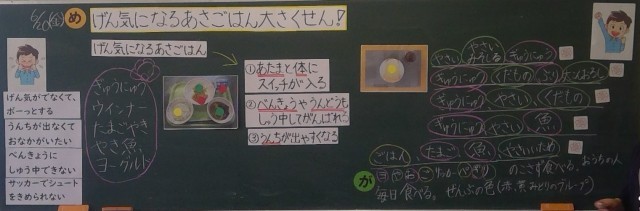 6/20(金) め げん気になろあさごはん大さくせん!
げん気がでなくて、
ボーッとする
うんちが出なくて
おなかがいたい
べんきょうに
しゅう中できない
サッカーでシュート
をきめられない
げん気になるあさごはん
ぎゅうにゅう
ウインナー
たまごやき
やき魚
ヨーグルト
①あたまと体に
スイッチが入る
②べんきょうやうんどうも
しゅう中してがんばれる
③うんちが出やすくなる
やさい やさい みそしる ぎゅうにゅう
ぎゅうにゅう くだもの ぶり 大こんおろし
ぎゅうにゅう、やさい、くだもの
ぎゅうにゅう、やさい、魚
ごはん たまご、魚、やさいいため
が
のこさず食べる。おうちの人
毎日食べる。ぜんぶの色(赤、黄、みどりのグループ)